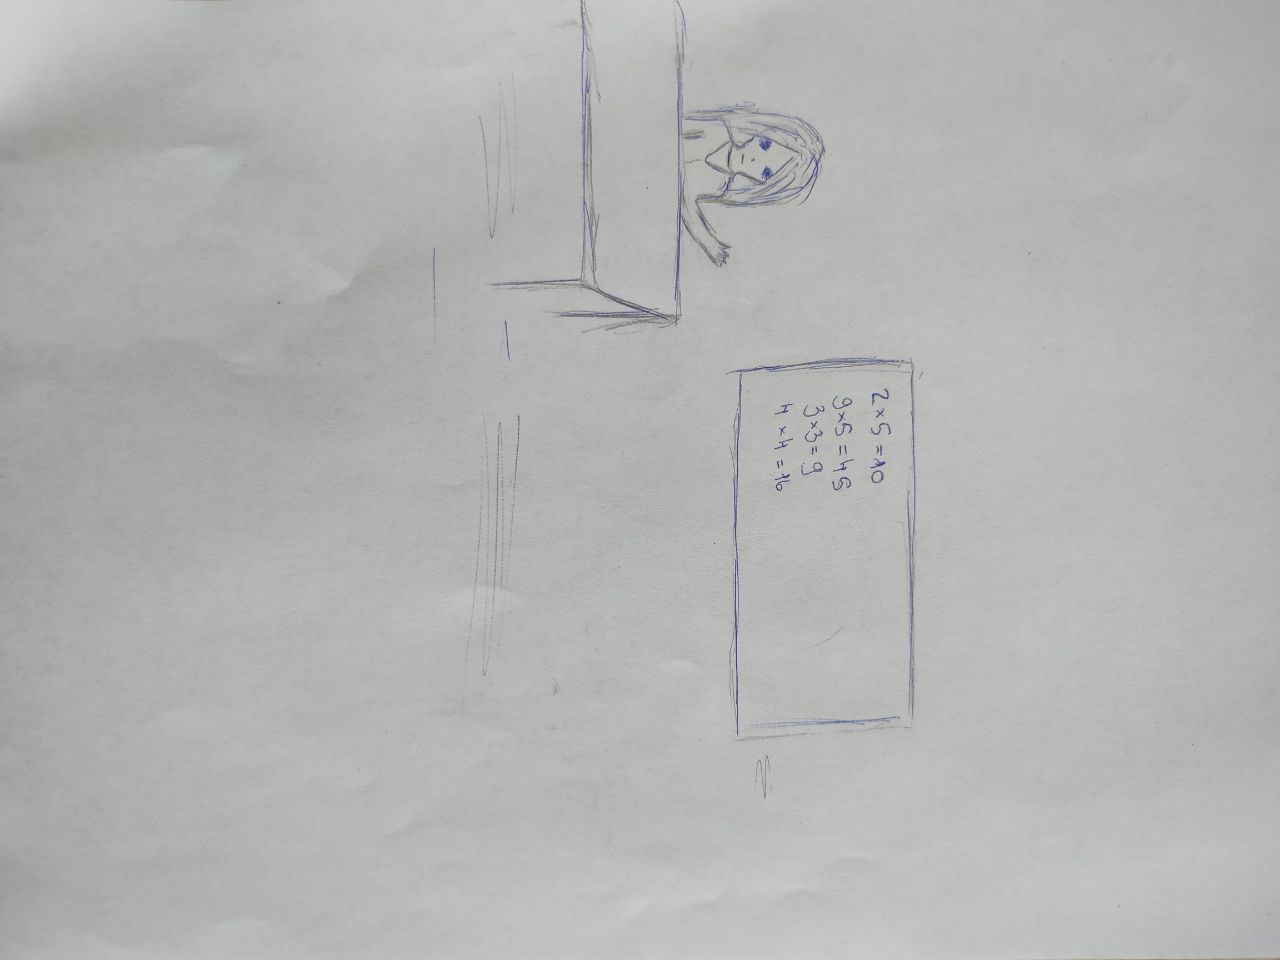 2×5=10
9×5=45
3×3=9
4×4=16